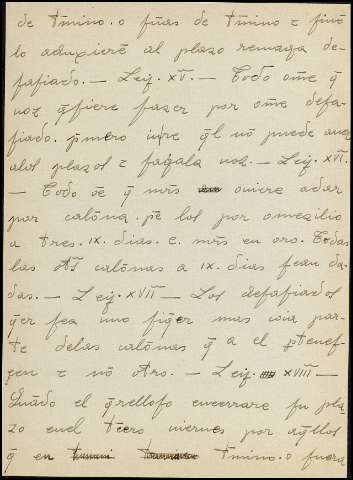 de t̃mino. o fũas de t̃mino τ si nõ
lo aduxiere al plazo remaga de-
safiado. — Ley. xv. — Todo om̃e q̃
uoz q̃siere fazer por om̃e desa-
fiado. p̃mero iure q̃l nõ puede
alos plazos τ fagala uoz. — Ley. XVI.
— Todo õe q̃ mr̃s ouiere adar
por calõna. pẽ los por omezilio
a tres. ix. dias. e. mr̃s en oro. Todas
las calõnas a ix. dias sean da-
das. — Ley. XVII — Los desafiados
q̃er sea uno siq̃er mas coia par-
te delas calõnas q̃ a el ptenes-
çen τ nõ otro. — Ley. XVIII —
Quãdo el q̃relloso encerrare su pla-
zo enel t̃cero uiernes por aq̃llos
q̃ en t̃mino. o fuera